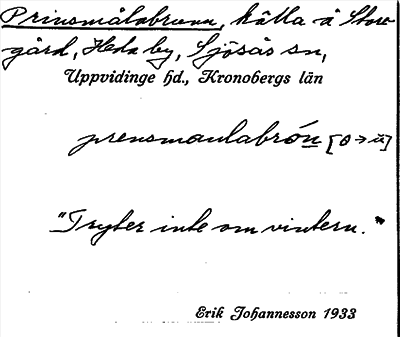 Prinsmålabrunn, källa å Store-
gård, Heda by, Sjösås sn,
Uppvidinge hd., Kronobergs län
prensmaulabrón [o→ü]
"Tryter inte om vintern."
Erik Johannesson 1933